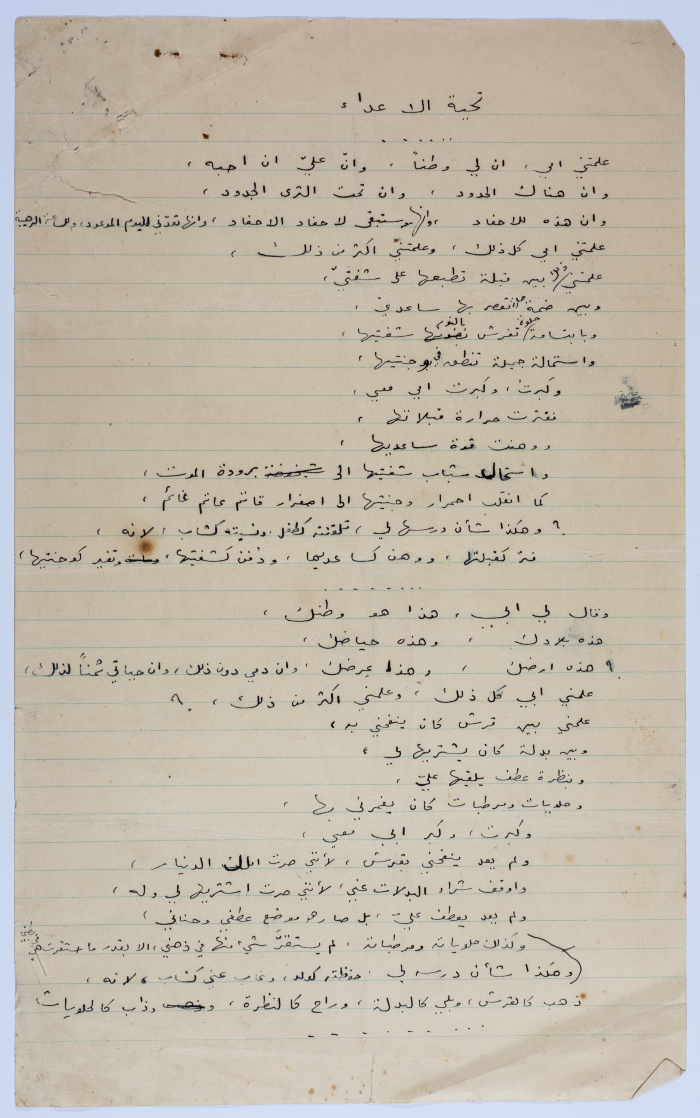 تحية الاعداء
علمتني امي، ان لي وطناً، وانّ عليّ ان احبه،
وان هناك الحدود، وان تحت الثرى الجدود،
وان هذه للاحفاد، وانها ستبقى لاحفاد الاحفاد، وانها تعدّني لليوم الموعود،
علمتني امي كل ذلك، وعلمتني اكثر من ذلك،
علمتني بين قبلة تطبعها على شفتيّ،
وبين ضمة تعصر بها ساعديّ،
وبابتسامة حلوة تفرش بالنور شفتيها،
واستمالة جميلة تنطق في وجنتيها،
وكبرتُ، وكبرت امي معي،
ففترت حرارة قبلاتها،
ووهنت قوة ساعديها،
واستحال شباب شفتيها الى برودة الموت،
كما انقلب احمرار وجنتيها الى اصفرار قاتم عاتم غائم،
وهكذا شأن درسها لي، تلقفته كطفل، ونسيته كشاب، لانه،
فتر كقبلتها، ووهن كساعديها، ودُفن كشفتيها، وتغير كوجنتيها،
وقال لي ابي، هذا هو وطنك،
هذه بلادك، وهذه حياضك،
هذه ارضك، وهذا عِرضك، وان دمي دون ذلك، وان حياتي ثمناً لذلك،
علمني ابي كل ذلك، وعلمني اكثر من ذلك،
علمني بين قرش كان ينفحني به،
وبين بدلة كان يشتريها لي،
ونظرة عطف يلقيها عليّ،
وحلويات ومرطبات كان يغمرني بها،
وكبرت، وكبر ابي معي،
ولم يعد ينفحني بقرش، لأنني صرت املك الدينار،
واوقف شراء البدلات عني، لأنني صرت اشتريها لي وله،
ولم يعد يعطف عليّ، بل صار هو موضع عطفي وحناني،
وكذلك حلوياته ومرطباته، لم يستقرّ شيء منها في ذهني، الا بقدر ما استقرت في بطني
وهكذا شأن درسه لي، حفظته كولد، وغاب عني كشاب، لانه،
ذهب كالقرش، وبلي كالبدلة، وراح كالنظرة، وذاب كالحلويات